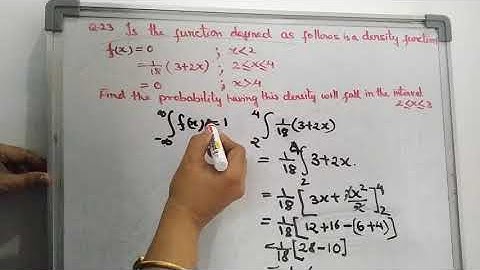 Q.23 Is the function defined as follows is a density function
f(x) = 0 ; x<2
= 1/18 (3+2x) ; 2≤x≤4
= 0 ; x>4
Find the probability having this density will fall in the interval
2≤x≤3
∞∫-∞ f(x) = 1
4∫2 1/18 (3+2x)
= 1/18 4∫2 3+2x.
= 1/18 [3x + 2x²/2]4 2
= 1/18 [12+16-(6+4)]
= 1/18 [28-10]